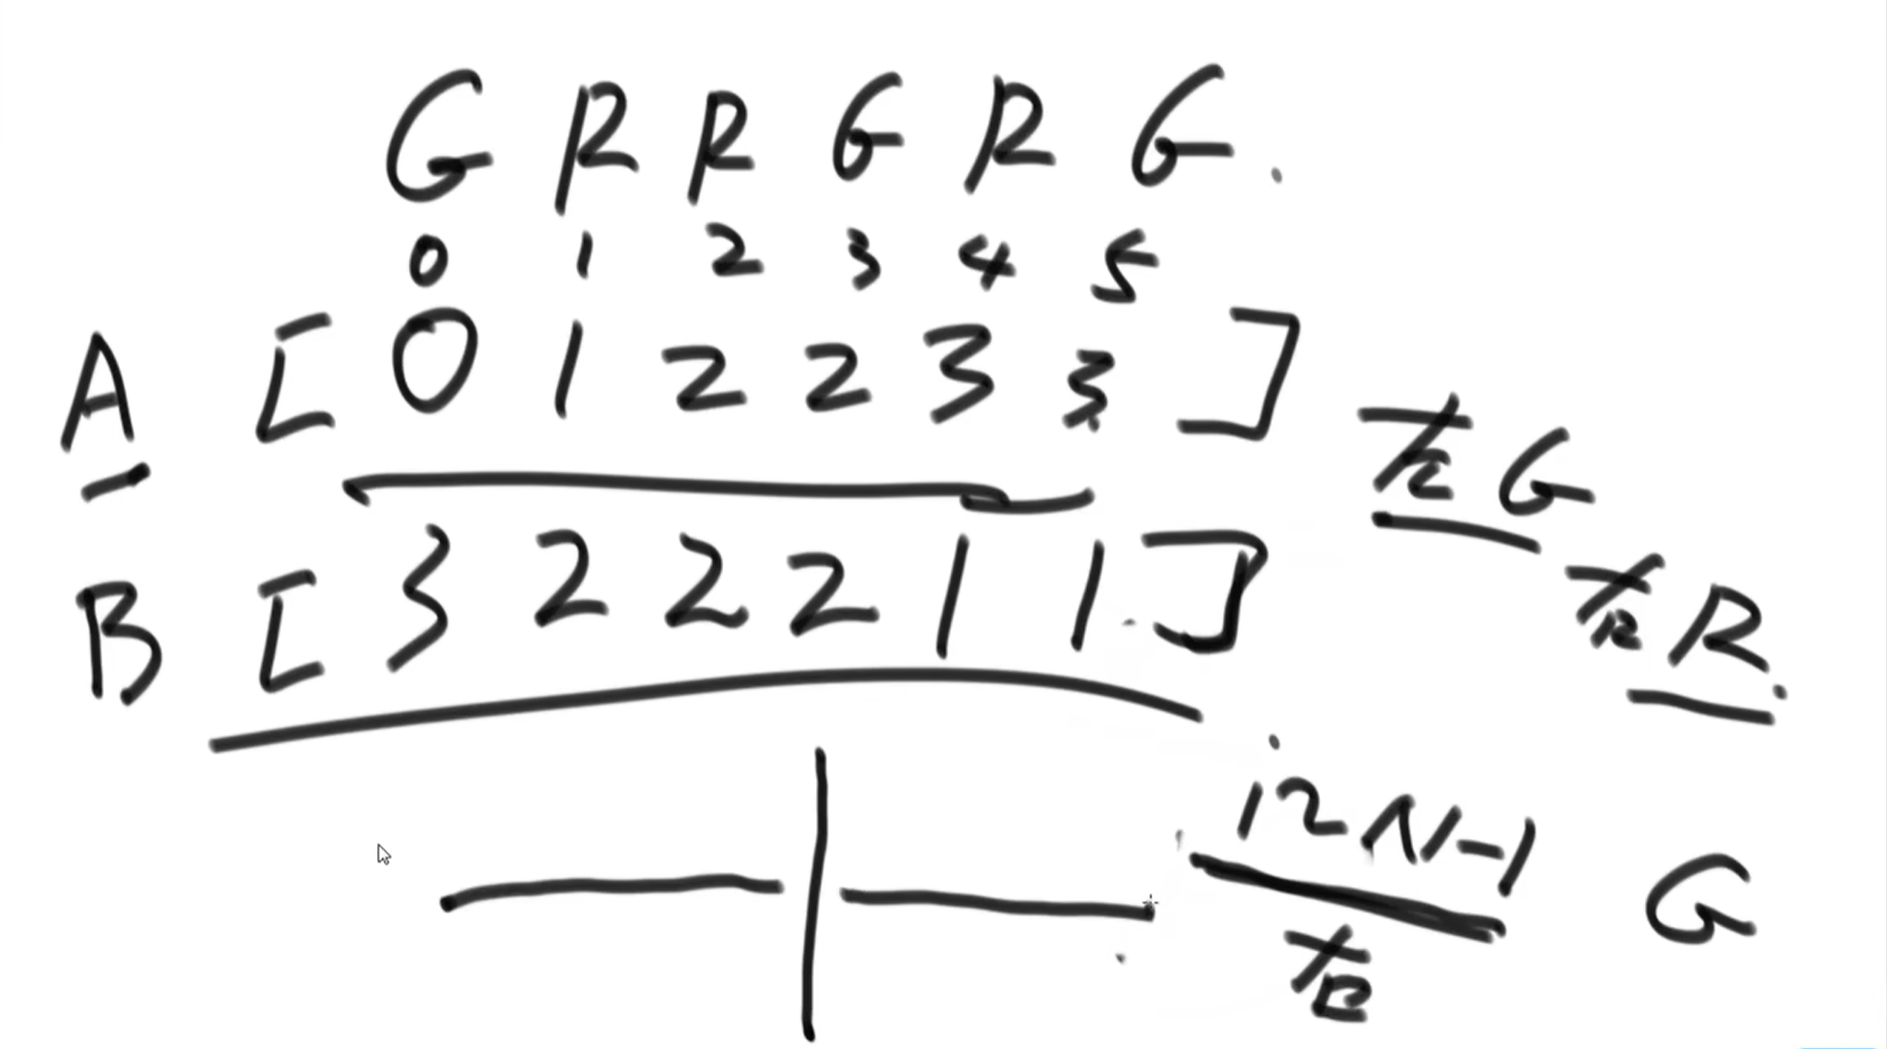 G R R G R G.
0 1 2 3 4 5
A [ 0 1 2 2 3 3 ]
右 G
B [ 3 2 2 2 1 1 ]
右 R.
i 2 N-1
G